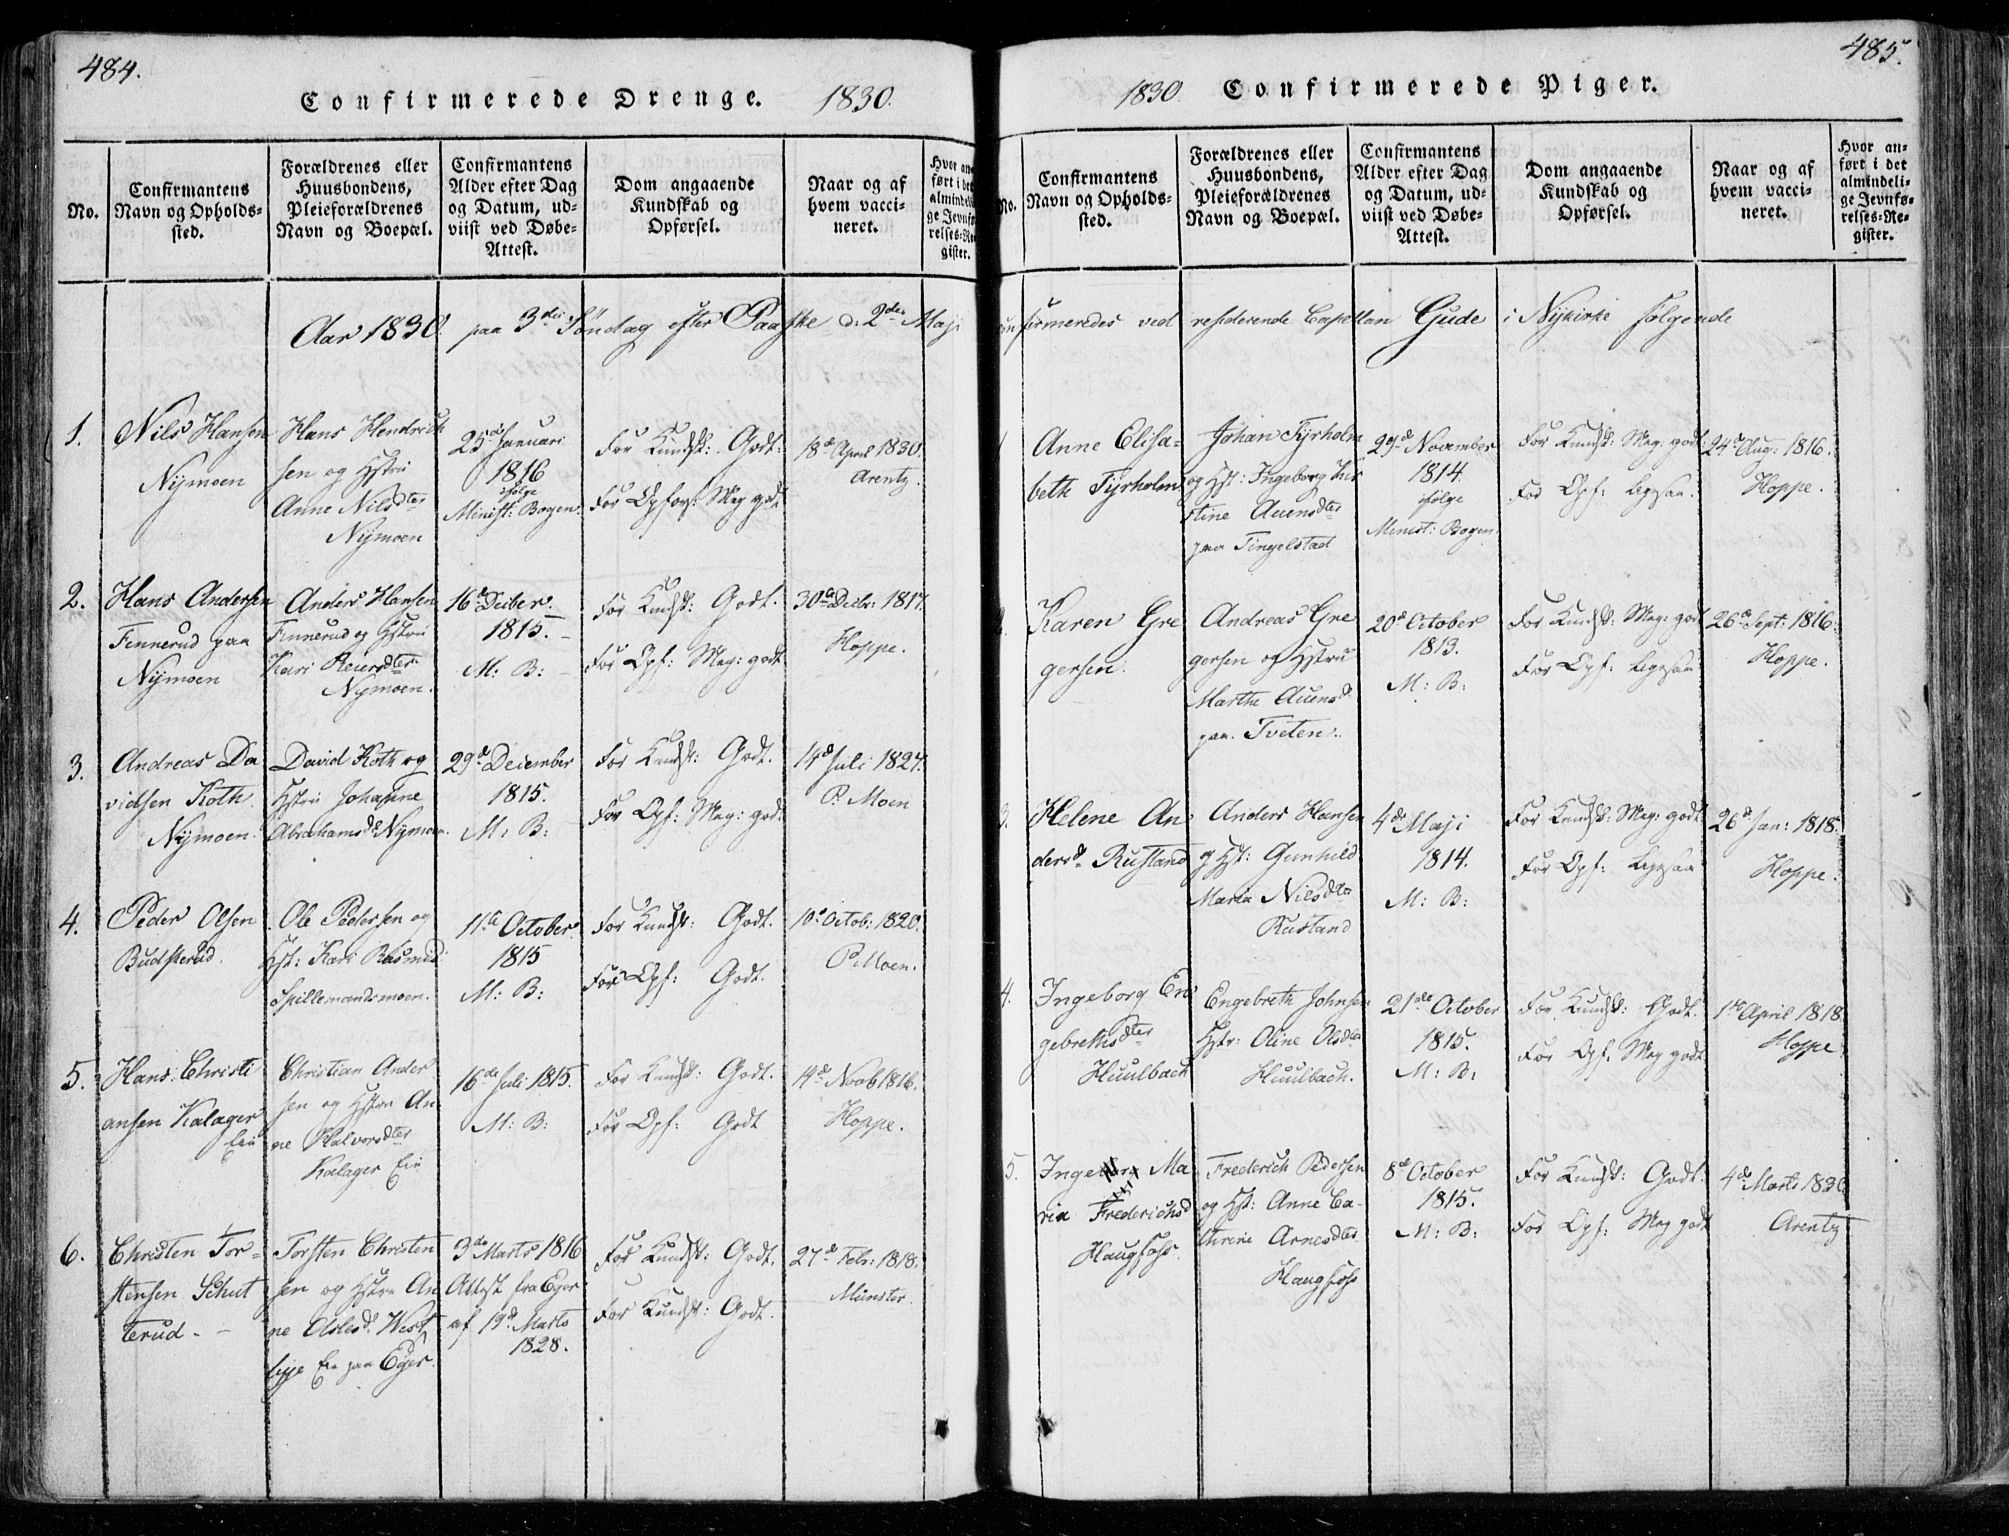 484.
Confirmerede Drenge. 1830.
No.
Confirmantens
Navn og Opholds-
sted.
Forældrenes eller
Huusbondens,
Pleieforældrenes
Navn og Boepæl.
Confirmantens
Alder efter Dag
og Datum, ud-
viist ved Døbe-
Attest.
Dom angaaende
Kundskab og
Opførsel.
Naar og af
hvem vacci-
neret.
Hvor an-
ført i det
almindeli-
ge Jevnfø-
relses-Re-
gister.
Aar 1830. paa 3die Söndag efter Paaske d. 2den Maji
1.
Nils Hansen
Nymoen
Hans Hendrich
sen og Hstru
Anne Nilsdter
Nymoen
25d Januari
1816
ifølge
Minist: Bogen.
For Kundsk: Godt.
For Opförs: Meg godt
18d April 1830.
Arentz.
2.
Hans Andersen
Finnerud paa
Nymoen
Anders Hansen
Finnerud og Hstru
Kari Reiersdter
Nymoen.
16d Decber.
1815.
M: B:
For Kundsk: Godt.
For Opf: Meg: godt
30d Decbr: 1817.
Hoppe.
3.
Andreas Da
vidsen Roth.
Nymoen.
David Roth og
Hstru Johanne
Abrahamsd: Nymoen.
29d December
1815.
M: B:
For Kundsk: Godt.
For Opf: Meg: godt
14d Juli 1827.
P. Moen
4.
Peder Olsen
Budsterud.
Ole Pedersen og
Hst: Kari Rasmusd
Spillemandsmoen.
11te October
1815
M: B:
For Kundsk: Godt.
For Opf: Godt.
10d Octob: 1820.
P. Moen.
5.
Hans Christi
ansen Kalager
Eie
Christian Ander
sen og Hstru An
ne Halvorsdter
Kalager Eie
16de Juli 1815.
M: B:
For Kundsk: Godt.
For Opf: Godt
14d Novb 1816.
Hoppe.
6.
Christen Tor-
stensen Schut
terud
Torsten Christen
sen og Hstru An
ne Olslesd. West
bye Eie paa Eger.
3de Marts 1816
Attest fra Eger
af 19d Marts
1828.
For Kundsk: Godt.
For Kundsk: Godt.
27d Febr: 1818.
Münster.
485.
1830. Confirmerede Piger.
No.
Confirmantens
Navn og Opholds-
sted.
Forældrenes eller
Huusbondens,
Pleieforældrenes
Navn og Boepæl.
Confirmantens
Alder efter Dag
og Datum, ud-
viist ved Døbe-
Attest.
Dom angaaende
Kundskab og
Opførsel.
Naar og af
hvem vacci-
neret.
Hvor an-
ført i det
almindeli-
ge Jevnfø-
relses-Re-
gister.
confirmeredes ved residerende Capellan Gude i Nykirke følgende
1
Anne Elisa-
beth Tyrholm
Johan Tyrholm
og Hst: Ingeborg Kir
stine Auensdter
paa Tingelstad
29d November
1814.
ifølge
Minist: Bogen.
For Kundsk: Meg: godt
For Opf: ligesaa.
24d Aug: 1816.
Hoppe.
2.
Karen Gre
gersen.
Andreas Gre
gersen og Hstru
Marthe Auensd
paa Tveten.
20d October
1813.
M: B:
For Kundsk: Meg: godt
For Opf: ligesaa
26d Sept: 1816.
Hoppe.
3.
Helene An
dersd Rustand
Anders Hansen
og Hst: Gunhild
Maria Nilsdtr
Rustand
4de Maji
1814.
M: B:
For Kundsk: Meg: godt
For Opf: ligesaa
26d Jan: 1818.
Hoppe.
4.
Ingeborg En
gebrethsdter
Huulbach
Engebreth Johnsen
Hstr: Oline Olsdtr
Huulbach.
21de October
1815.
M: B:
For Kundsk: Godt.
For Opf: Meg godt
1st April 1818
Hoppe
5.
Ma
ria Frederichsd
Haugfoss.
Frederich Pedersen
og Hst: Anne Ca-
threne Arnesdter
Haugfoss
8d October
1815.
M: B:
For Kundsk: Godt.
For Opf: Meg godt
4de Marts 1830
Arentz